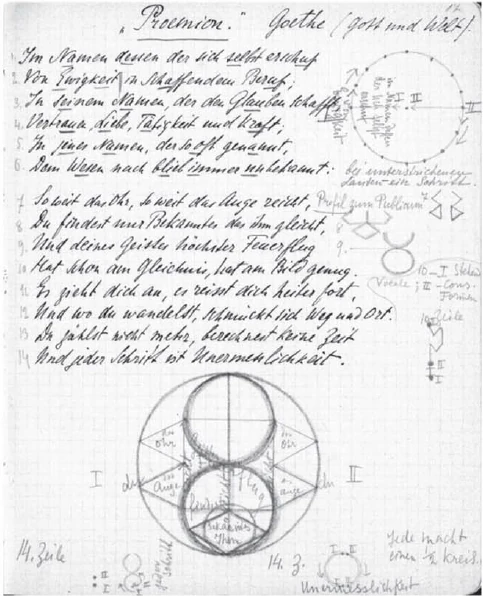 „Proemion." Goethe (Gott und Welt).
1. Im Namen dessen der sich selbst erschuf
2. Von Ewigkeit in schaffendem Beruf;
3. In seinem Namen, der den Glauben schafft,
4. Vertrauen, Liebe, Tätigkeit und Kraft;
5. In jenes Namen, der so oft genannt,
6. Dem Wesen nach blieb immer unbekannt:
I II
bei unterstrichenen
Lauten ein Schritt.
7 Soweit das Ohr, so weit das Auge reicht,
8 Du findest nur Bekanntes das ihm gleicht,
9. Und deines Geistes höchster Feuerflug
10 Hat schon am Gleichnis, hat am Bild genug.
11 Es zieht dich an, es reisst dich heiter fort,
12 Und wo du wandelst, schmückt sich Weg und Ort.
13 Du zählst nicht mehr, berechnest keine Zeit
14 Und jeder Schritt ist Unermesslichkeit.
Profil zum Publikum
7
8
9.
10 – I Stehen
Vocale; II – Cons.
Formen
10 Zeile
II
I
I II
Ohr Ohr
du Auge Auge du
14. Zeile
jeder
Schritt
14. Z.
I II
Jede macht
einen ½ Kreis.
Unermesslichkeit